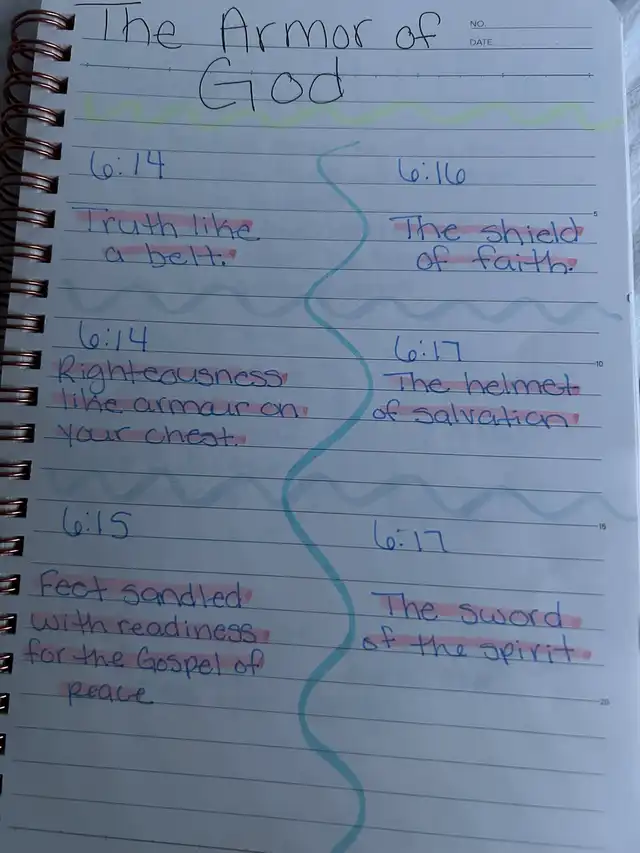 The Armor of
God
NO.
DATE
6:14
Truth like
a belt.
6:14
Righteousness
like armour on
your chest.
6:15
Feet sandled
with readiness
for the Gospel of
peace
6:16
The shield
of faith.
6:17
The helmet
of salvation
6:17
The sword
of the spirit.
5
10
15
20